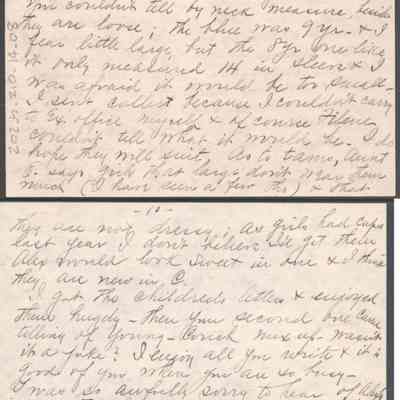 you couldn't tell by neck measure, besides
they are loose, the blue was 9 yr. & I
fear little large, but the 8 yr one like
it only measured 14 in sleeve & I
was afraid it would be too small -
I sent collect because I couldn't carry
to Ex. office myself & of course
couldn't tell what it would be. I do
hope they will suit, As to tams, Aunt
C. says girls that large don't wear them
much (I have seen a few tho) & that
- 10 -
they are not dressy; as girls had caps
last year I don't believe I'd get them
Alex would look sweet in one & I think
they are new in C.
I got the children's letters & enjoyed
them hugely - then your second one came
telling of Young - mix up - wasn't
it a joke? I enjoy all you write & it is
good of you when you are so busy -
I was so awfully sorry to hear of